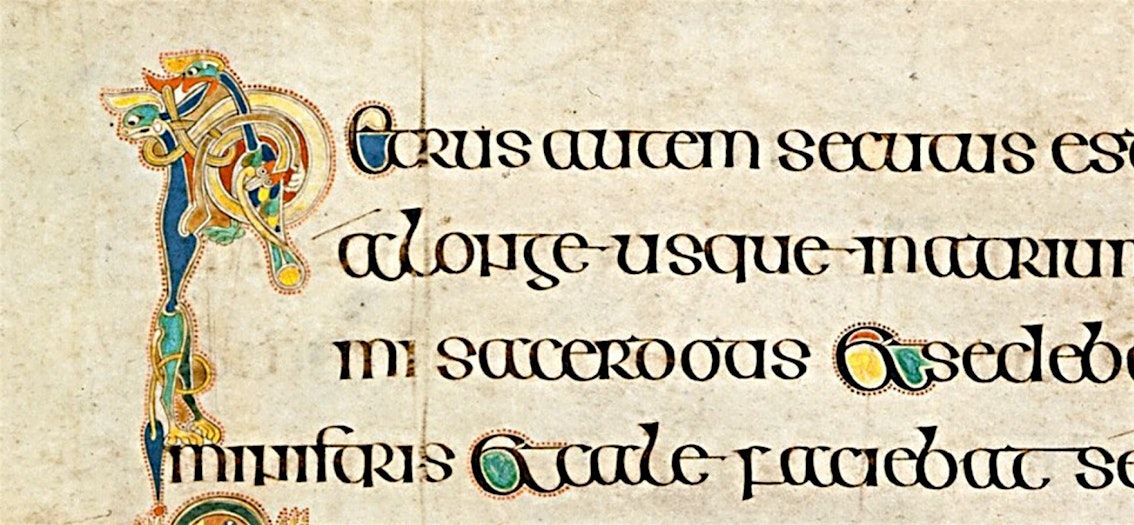 Petrus autem secutus est
a longe usque in atrium
mi sacerdotis et sedeba
ministris et cale faciebat se